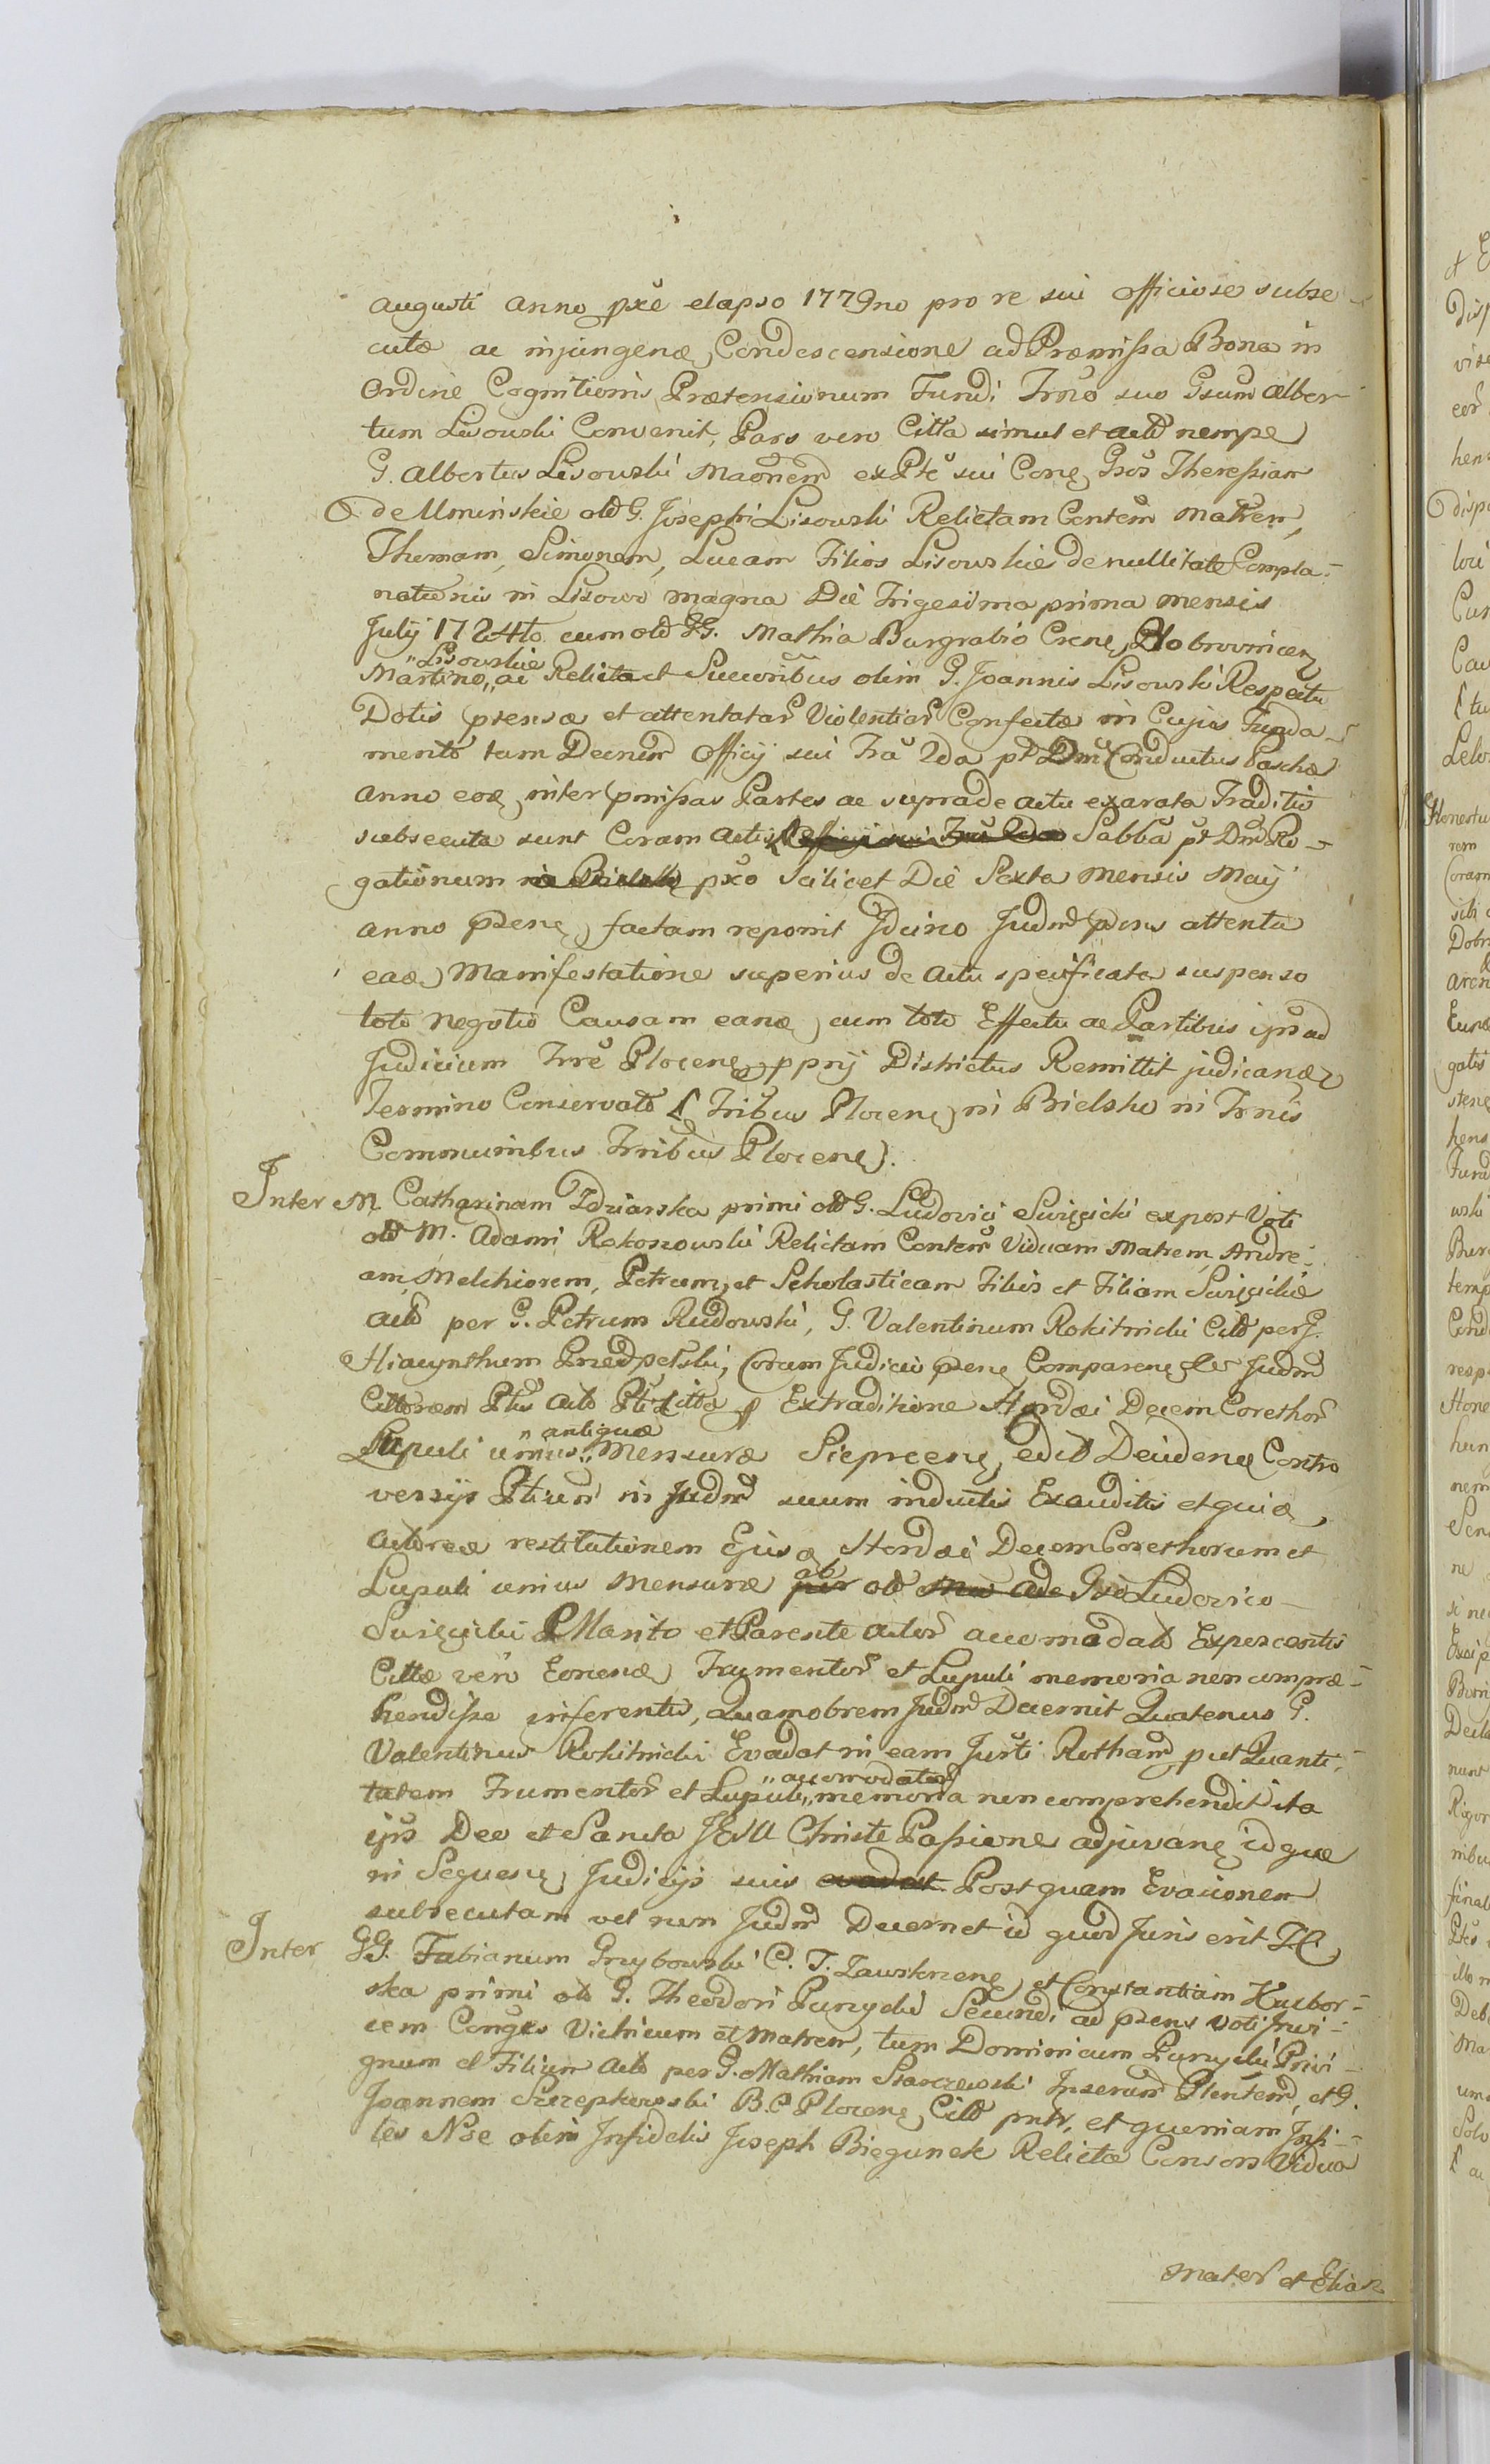 Augusti anno pxe elapso 1779no pro re sui officiose subse-
cutæ ac injungenæ Condescensione ad Præmissa Bona in
Ordine Cognitionis Prætensionum Fundi Trno suo Gsum Alber-
tum Lisowski Convenit, Pars vero Citta simul et actd nempe
G. Albertus Lisowski Maonem ex Pte sui Conq Gsos Theressiam
de Uminskie old G. Josephi Lisowski Relictam Contem Matrem,
Thomam, Simonem, Lucam Filios Lisowskie de nullitate Compla-
nationis in Lisowo magna Die Trigesima prima mensis
July 1724to cum old GG. Mathia Burgrabio Crenc Dobrzynicen
Martino „Lisowskie„ ac Relicta et Succoribus olim G. Joannis Lisowski Respectu
Dotis ptensæ et attentatar Violentiar Confectæ in Cujus Funda-
mento tam Decnem Officij sui Tra 2da pt Dm Conductus Paschæ
anno eoq inter pmissas Partes ac suprade actu exarata Traditio
subsecuta sunt Coram Actis Sabba pt Dm Ro-
gationum pxo Scilicet Die Sexta Mensis Maij
anno pzenq factam reponit Idcirco Judm pzens attenta
eaq Manifestatione superius de Actu specificata suspenso
toto Negotio Causam eanq cum toto Effectu ac Partibus ips ad
Judicium Trre Plocenq pprij Districtus Remittit judicanq
Termino Conservato Tribus Plocenq in Bielsko in Trnis
Communibus Trribus Plocenq.
Inter M. Catharinam Zdziarska primi old G. Ludovici Swięcicki expost Voti
old M. Adami Rokoszowski Relictam Contem Viduam Matrem, Andre-
am, Melchiorem, Petrum, et Scholasticam Filios et Filiam Swięcickie
Acto per G. Petrum Rudowski, G. Valentinum Rokitnicki Citd per G.
Hiacynthum Przedpełski, Coram Judicio pzenq Comparenq Judm
Extraditione Hordei Decem Corethor
Lupuli unius „antiquæ„ Mensuræ Sieprcenq, edit Decidenq Contro
versijs Ptium in Judm suum inductis Exauditis et quia
Actorea restitutionem Ejusq Hordæi Decem Corethorum et
Lupuli unius Mensuræ ab old Gso Ludovico
Swięcicki Marito et Parente Actor accomodato Exposcentis
Cittæ vero Eorunq Frumentor et Lupuli memoria non compræ-
hendisse inferentis, Quamobrem Judm Decernit Quatenus G.
Valentinus Rokitnicki Evadat in eam Justi Rotham put Quanti-
tatem Frumentor et Lupuli „accomodator„ memoria non comprehendit ita
ips Deo et Sancta JESU Christi Passione adjuvanq idque
in Sequenq Judicijs suis Postquam Evasionem
subsecutam vel non Judm Decernet id quod Juris erit
Inter GG. Fabianum Grzybowski C. T. Zawskrzenq et Constantiam Xiezbor-
ska primi old G. Theodori Punycki Secundi ad pzens Voti Invi-
cem Conges Vitricum et Matrem, tum Dominicum Punycki Privi-
gnum et Filium Acto per G. Mathiam Starczewski Inserum Plentem, et G.
Joannem Szczepkowski B. C. Plocenq Citd pntr, et quoniam Infi-
les Nse olim Infidelis Joseph Biegunek Relicta Consors Vidua
Mater et Elias